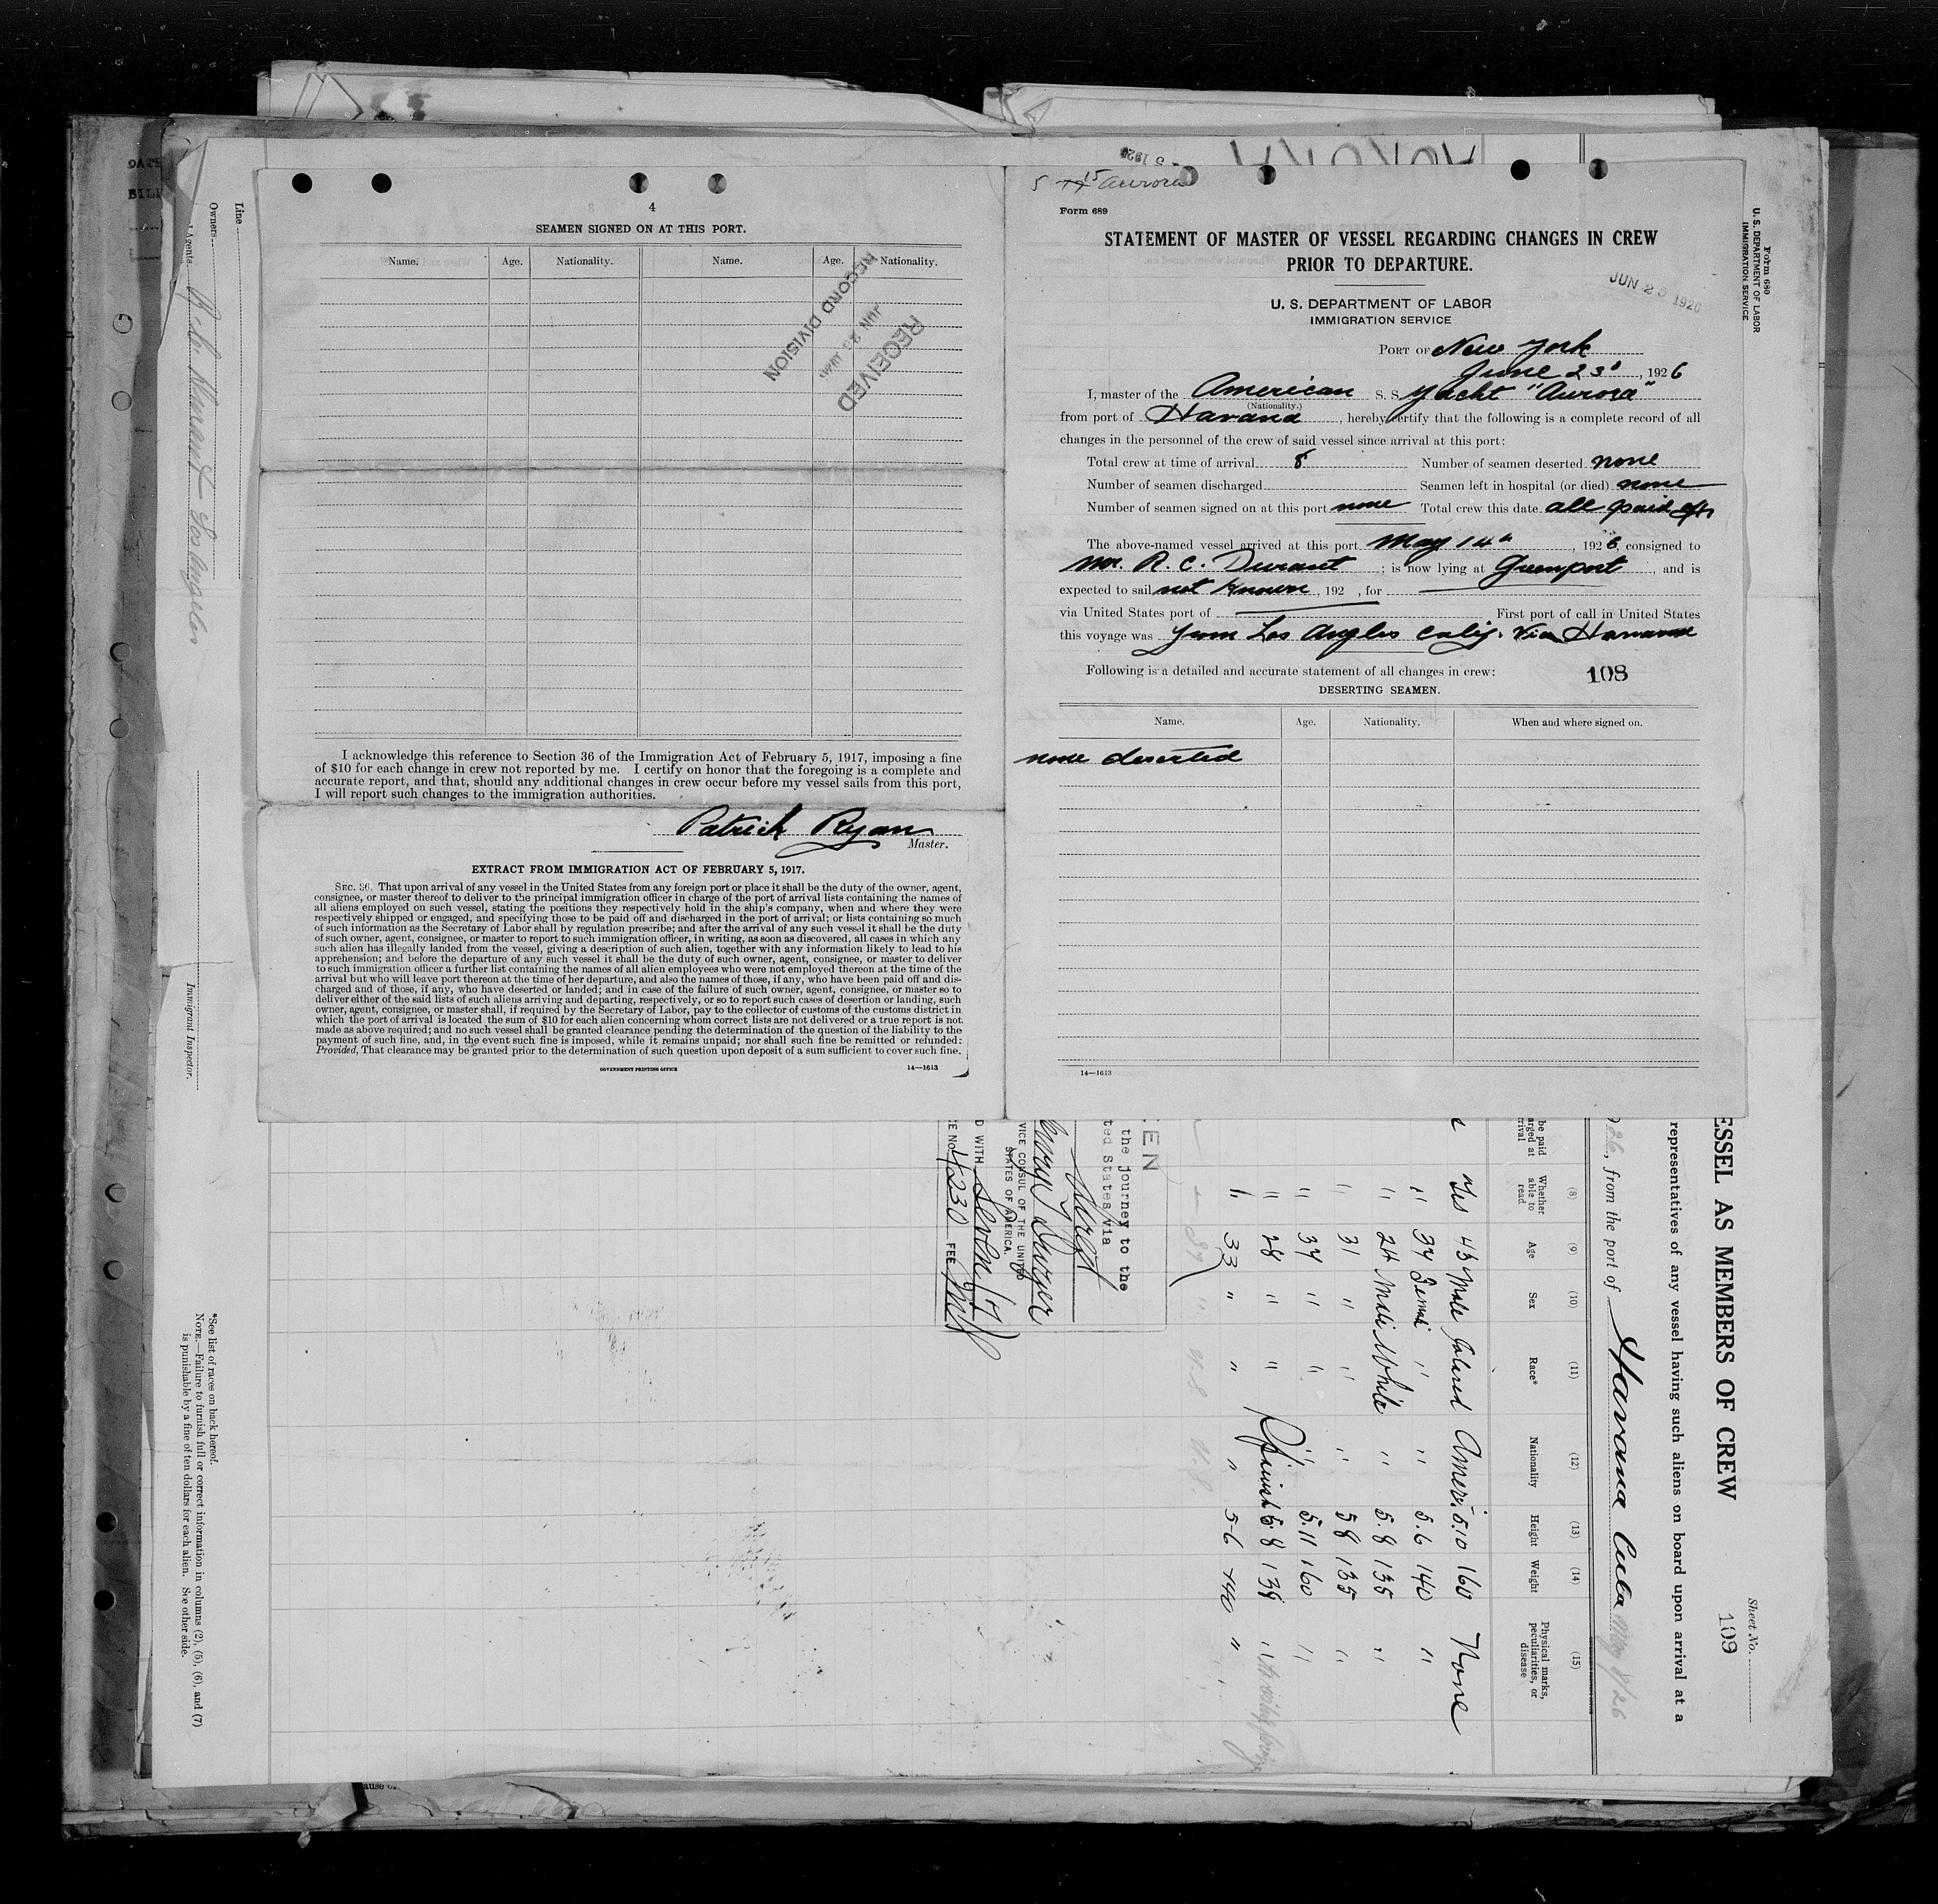 4
SEAMEN SIGNED ON AT THIS PORT.
Name. Age. Nationality. Name. Age. Nationality.
RECEIVED
RECORD DIVISION
I acknowledge this reference to Section 36 of the Immigration Act of February 5, 1917, imposing a fine
of $10 for each change in crew not reported by me. I certify on honor that the foregoing is a complete and
accurate report, and that, should any additional changes in crew occur before my vessel sails from this port,
I will report such changes to the immigration authorities.
Patrick Ryan
Master.
EXTRACT FROM IMMIGRATION ACT OF FEBRUARY 5, 1917.
SEC. 36. That upon arrival of any vessel in the United States from any foreign port or place it shall be the duty of the owner, agent,
consignee, or master thereof to deliver to the principal immigration officer in charge of the port of arrival lists containing the names of
all aliens employed on such vessel, stating the positions they respectively hold in the ship's company, when and where they were
respectively shipped or engaged, and specifying those to be paid off and discharged in the port of arrival; or lists containing so much
of such information as the Secretary of Labor shall by regulation prescribe; and after the arrival of any such vessel it shall be the duty
of such owner, agent, consignee, or master to report to such immigration officer, in writing, as soon as discovered, all cases in which any
such alien has illegally landed from the vessel, giving a description of such alien, together with any information likely to lead to his
apprehension; and before the departure of any such vessel it shall be the duty of such owner, agent, consignee, or master to deliver
to such immigration officer a further list containing the names of all alien employees who were not employed thereon at the time of the
arrival but who will leave port thereon at the time of her departure, and also the names of those, if any, who have been paid off and dis-
charged and of those, if any, who have deserted or landed; and in case of the failure of such owner, agent, consignee, or master so to
deliver either of the said lists of such aliens arriving and departing, respectively, or so to report such cases of desertion or landing, such
owner, agent, consignee, or master shall, if required by the Secretary of Labor, pay to the collector of customs of the customs district in
which the port of arrival is located the sum of $10 for each alien concerning whom correct lists are not delivered or a true report is not
made as above required; and no such vessel shall be granted clearance pending the determination of the question of the liability to the
payment of such fine, and, in the event such fine is imposed, while it remains unpaid; nor shall such fine be remitted or refunded:
Provided, That clearance may be granted prior to the determination of such question upon deposit of a sum sufficient to cover such fine.
GOVERNMENT PRINTING OFFICE 14—1613
5 15 Aurora
Form 689
STATEMENT OF MASTER OF VESSEL REGARDING CHANGES IN CREW
PRIOR TO DEPARTURE.
U. S. DEPARTMENT OF LABOR
IMMIGRATION SERVICE
PORT OF New York
June 23d, 1926
I, master of the American S. S. Yacht "Aurora"
(Nationality.)
from port of Havana, hereby certify that the following is a complete record of all
changes in the personnel of the crew of said vessel since arrival at this port:
Total crew at time of arrival 8 Number of seamen deserted none
Number of seamen discharged Seamen left in hospital (or died) none
Number of seamen signed on at this port none Total crew this date all paid off
The above-named vessel arrived at this port May 14th, 1926, consigned to
Mr. R. C. Durant; is now lying at Greenport, and is
expected to sail not known, 192 , for
via United States port of First port of call in United States
this voyage was from Los Angles Calif. Via Havana
Following is a detailed and accurate statement of all changes in crew: 108
DESERTING SEAMEN.
Name. Age. Nationality. When and where signed on.
none deserted
14—1613
Form 680
U. S. DEPARTMENT OF LABOR
IMMIGRATION SERVICE
Line
Owners
R. C. Durant Los Angeles
Immigrant Inspector.
*See list of races on back hereof.
NOTE.—Failure to furnish full or correct information in columns (2), (5), (6), and (7)
is punishable by a fine of ten dollars for each alien. See other side.
Sheet No.
109
ESSEL AS MEMBERS OF CREW
representatives of any vessel having such aliens on board upon arrival at a
, from the port of Havana Cuba May 8/26
(8) (9) (10) (11) (12) (13) (14) (15)
Whether able to read Age Sex Race* Nationality Height Weight Physical marks, peculiarities, or disease
Yes 43 Male Colored Ameri. 5.10 160 None
" 34 Female " " 5.6 140 "
" 24 Male White " 5.8 135 "
" 31 " " " 5 8 135 "
" 34 " " " 5.11 160 "
" 28 " " 5 8 138 "
" 33 " " " 5-6 140 "
the journey to the
ted States via
VICE CONSUL OF THE UNITED
STATES OF AMERICA.
4230 FEE